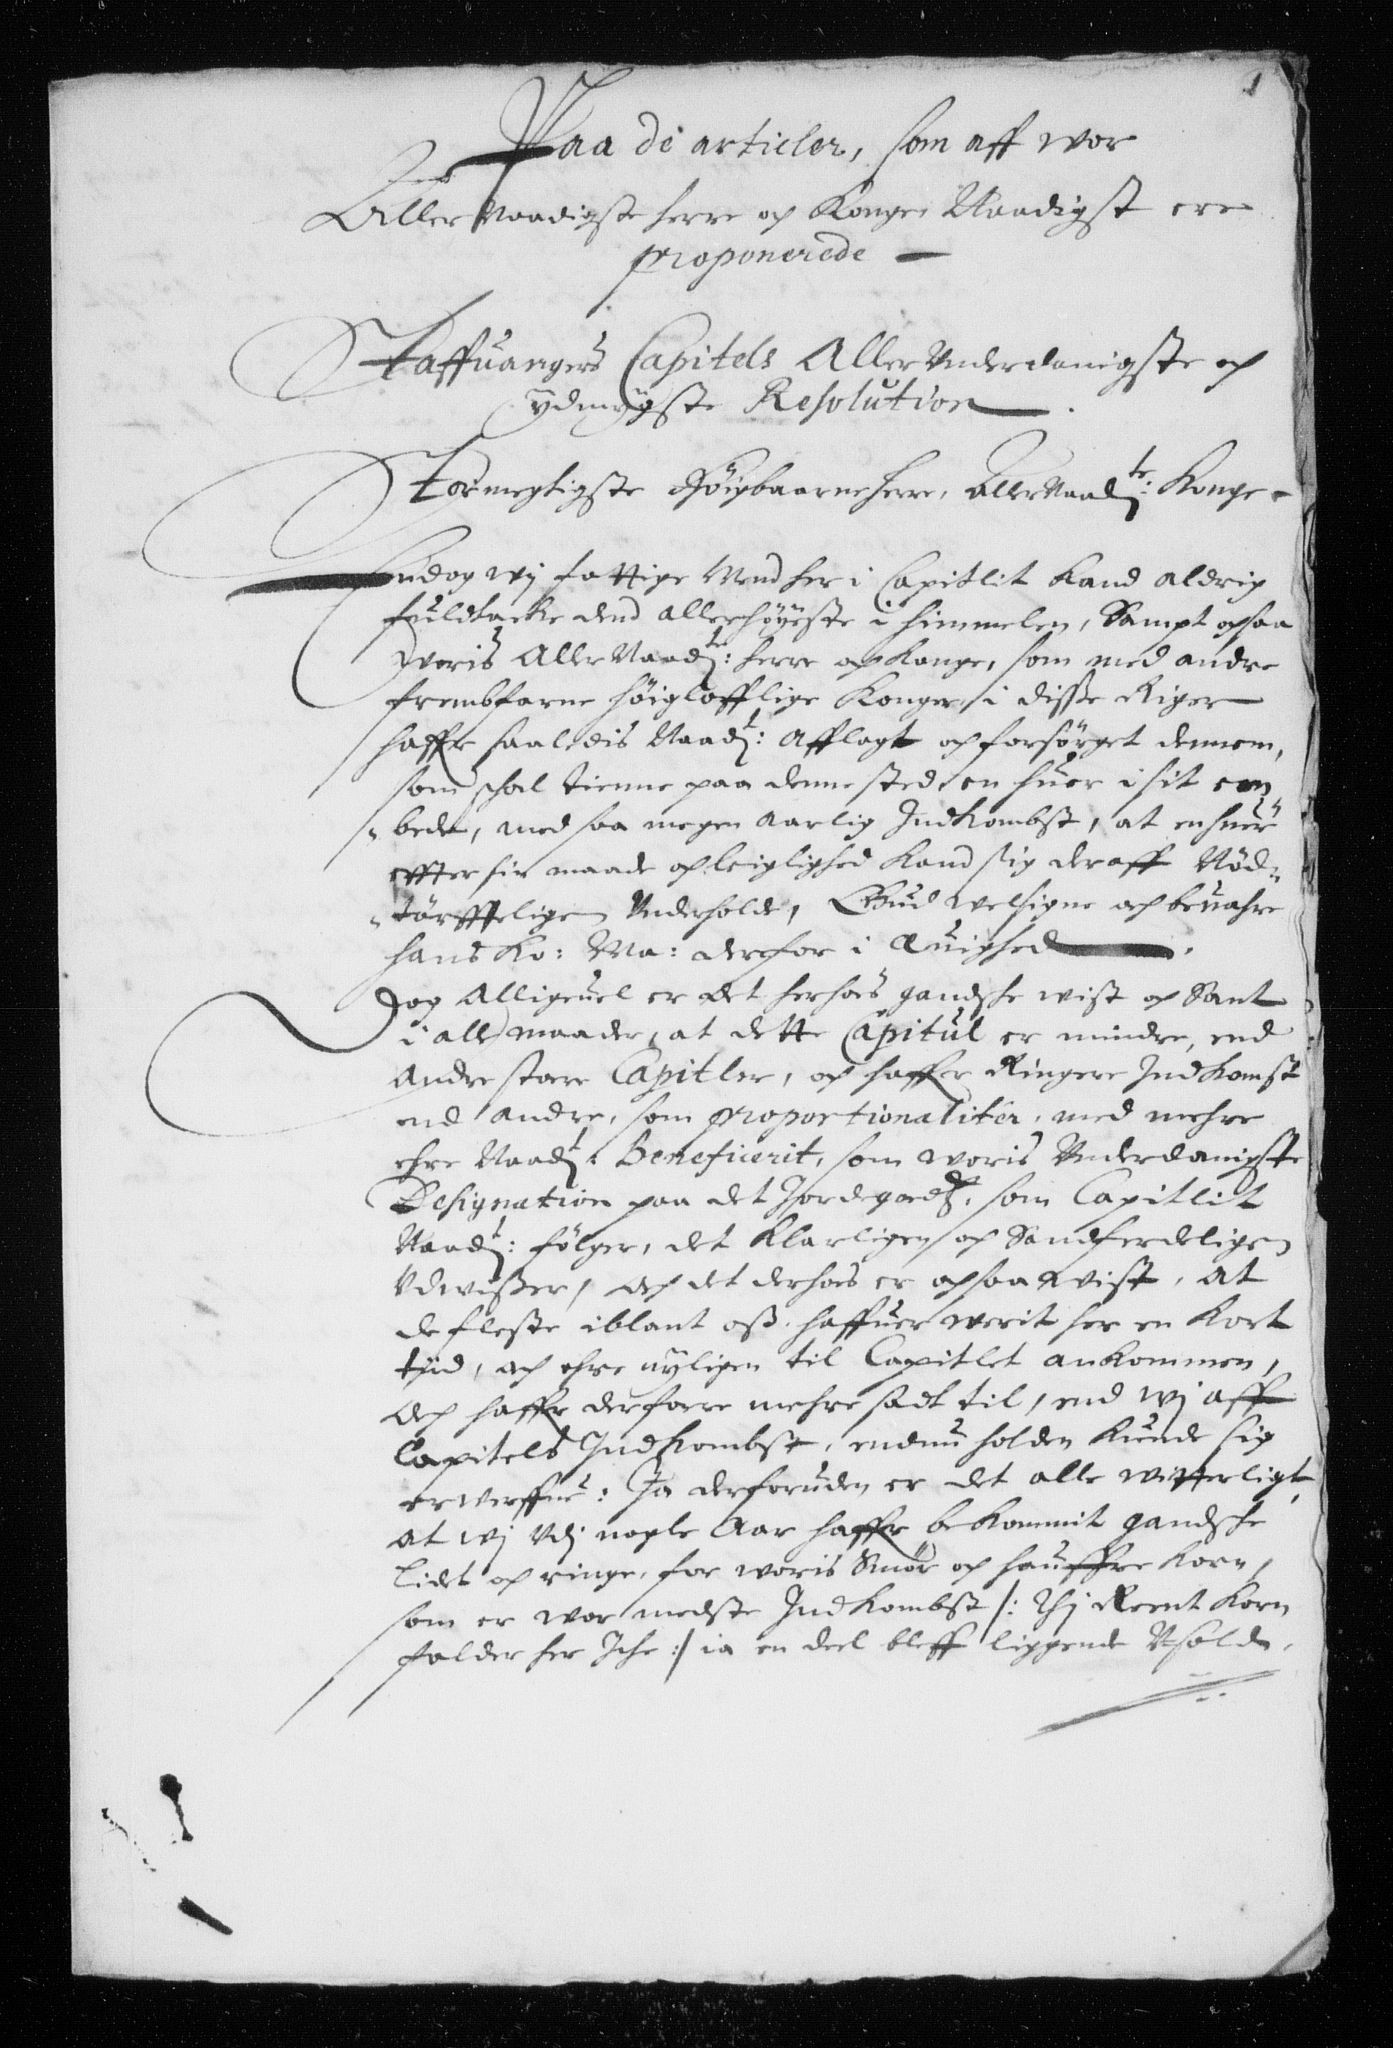 1
Paa de articler, som aff wor
Aller Naadigste herre och Konge Naadigst ere
proponerede
Staffuangers Capitels Aller Underdanigste och
ydmygste Resolution.
Stormegtigste Høigbaarne Herre, AllerNaadste: Konge
Endog wij fattige Mend her i Capitlit Kand aldrig
fuldtacke dend allerhøyeste i himmelen, Sampt ochsaa
Woris AllerNaadste: herre och Konge, som med andre
frembfarne høigloflige Konger i disse Riger
haffr saaledis Naadt: Afflagt och forsørget dennem,
som schal tienne paa denne sted, en huer i sit em,,
,,bede, med saa megen aarlig Indkombst, at enhuer
effter sin maade och leiglighed kand sig deraff Nød,,
,,tørffteligen Underholde, Gud velsigne och beuahre
hans Ko: Ma: derfor i Æuighed.
Dog Alligeuel er det herhos gandsche wist och Sant
i alle maader, at dette Capitul er mindre, end
Andre store Capitler, och haffer Ringere Indkomst
end andre, som proportionaliter, med mehre
ehre Naadt: Beneficerit, som woris Underdanigste
Designation paa det Jordegods, som Capitlit
Naadt: følger, det Klarligen och Sandferdeligen
Udwisser, och det derhos er ochsaa wist, at
de fleste iblant oss haffuer werit her en Kort
tiid, och ehre nyligen til Capitlet ankommen,
och haffr derfore mehre sadt til, end wj aff
Capitels Indkombst, endnu holden kunde sig
erwerffue: Ja derforuden er det alle witterligt,
at wj Udj nogle Aar haffr bekommit gandsche
lidet och ringe, for woris Smør och hauffre Korn,
som er wor medste Indkombst /: Thj Reent Korn
falder her Iche :/ ia en deel bleff liggende Usolde,